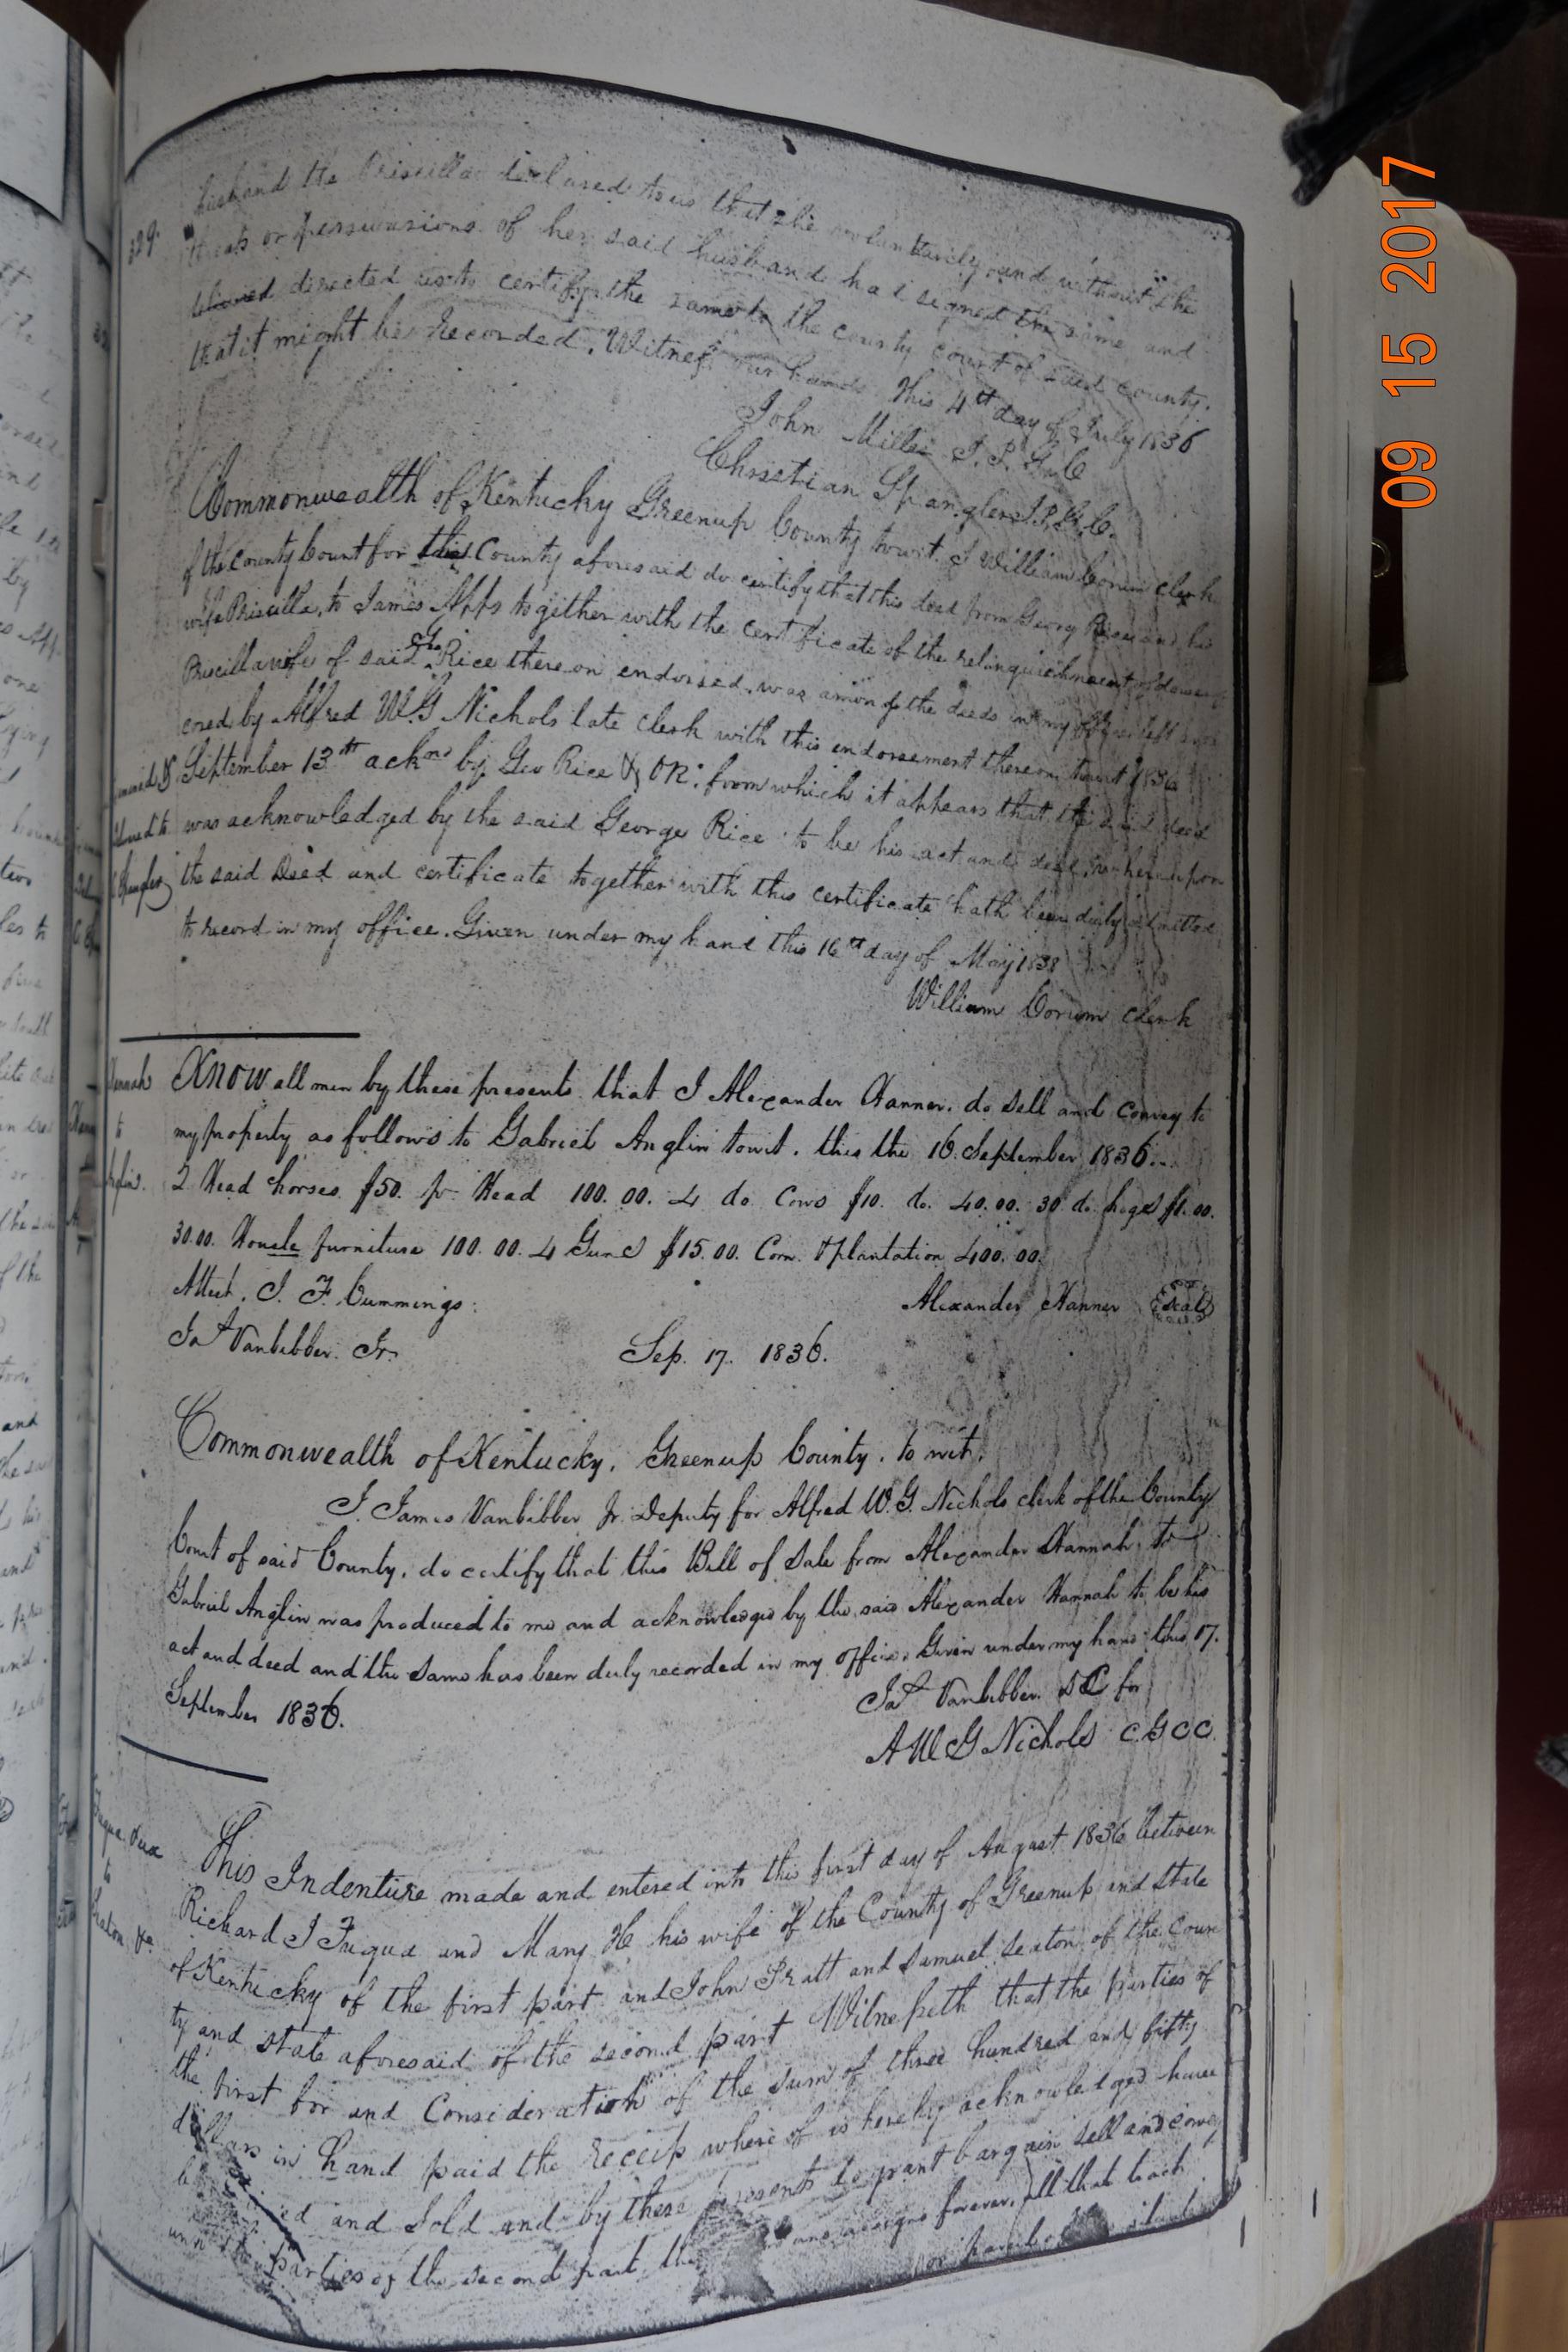 09 15 2017
329.
husband the Priscilla declared to us that she voluntarily and without the
threats or perswasions of her said husband had signed the same and
directed us to certify the same to the county court of said county.
that it might be recorded. Witness our hands this 4th day of July 1836
John Miller J. P. G. C
Christian Spangler J. P. G. C.
Commonwealth of Kentucky Greenup County towit. I William Corum clerk
of the County Court for the County aforesaid do certify that this deed from Georg Rice and his
wife Priscilla, to James Apps together with the certificate of the relinquishment of dower of
Priscilla wife of said Geo Rice there on endorsed, was among the deeds in my office left
by Alfred W. G Nichols late clerk with this endorsement thereon towit 1836
September 13th ackns by Geo Rice & OR. from which it appears that the said deed
was acknowledged by the said George Rice to be his act and deed, whereupon
the said Deed and certificate together with this certificate hath been duly admitted
to record in my office. Given under my hand this 16th day of May 1838
William Corum clerk
Hannah
to
Anglin.
Know all men by these presents that I Alexander Hanner. do sell and convey to
my property as follows to Gabriel Anglin towit. this the 16. September 1836.
2 Head horses $50. pr Head 100.00. 4 do Cows $10. do. 40.00. 30 do hogs $1.00.
30.00. House furniture 100.00. 4 Guns $15.00. Corn & plantation 400.00.
Attest. J. F. Cummings.
Alexander Hanner Seal
Jas Vanbibber. Jr.
Sep. 17. 1836.
Commonwealth of Kentucky, Greenup County, to wit,
I. James Vanbibber Jr. Deputy for Alfred W. G. Nichols clerk of the County
Court of said County, do certify that this Bill of Sale from Alexander Hannah, to
Gabriel Anglin was produced to me and acknowledged by the said Alexander Hannah to be his
act and deed and the same has been duly recorded in my office. Given under my hand this 17.
September 1836.
Jas Vanbibber. DC for
A W G Nichols C. G C C.
Fuqua &ux
to
Seaton, &c.
This Indenture made and entered into this first day of August 1836 between
Richard J Fuqua and Mary H his wife of the County of Greenup and State
of Kentucky of the first part and John Pratt and Samuel Seaton of the Coun
ty and state aforesaid of the second part Witnesseth that the parties of
the first for and Consideration of the sum of three hundred and fifty
dollars in hand paid the receip where of is hereby acknowledged have
and Sold and by these presents do grant bargain sell and convey
parties of the second part, and assigns forever, all that tract